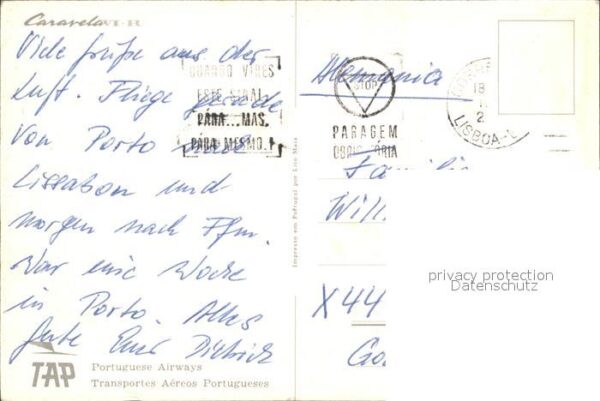 Caravela VI-R
Viele Grüße aus der
Luft. Fliege gerade
von Porto nach
Lissabon und
morgen nach Ffm.
War eine Woche
in Porto. Alles
Gute Euer Dietrich
TAP
Portuguese Airways
Transportes Aéreos Portugueses
QUANDO VIRES
ESTE SINAL
PÁRA... MAS.
PÁRA MESMO.
Impresso em Portugal por
Alemania
STOP
PARAGEM
OBRIGATÓRIA
18
LISBOA
Famili
Will
X 44
Go
privacy protection
Datenschutz